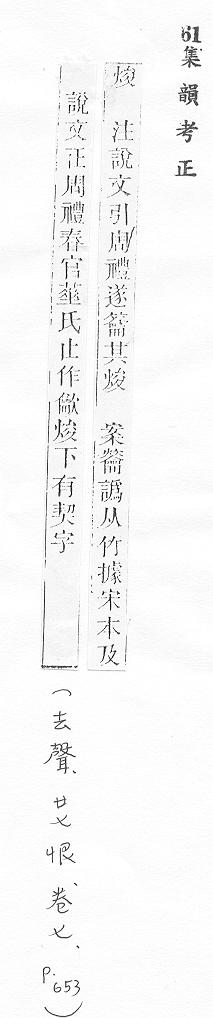 61
集韻考正
焌　注說文引周禮遂籥其焌　案籥譌从竹據宋本及
說文正周禮春官菙氏止作龡焌下有契字
（去聲、廿七恨、卷七、P.653）